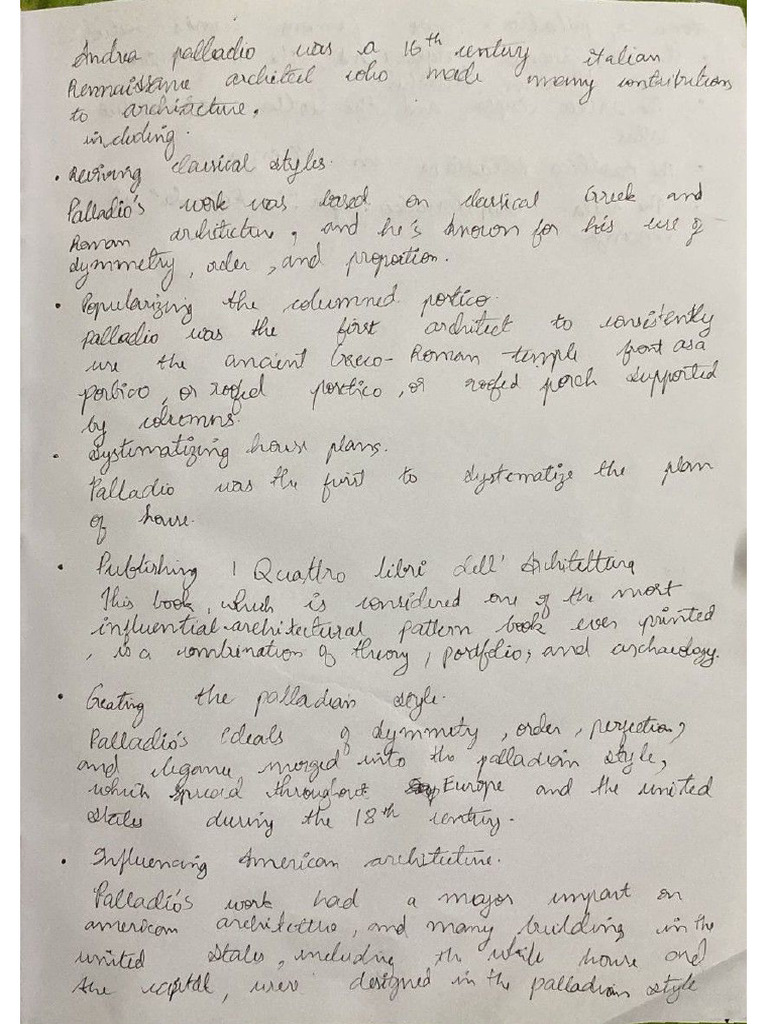 Andrea palladio was a 16th century italian
Rennaissance architect who made many contributions
to architecture.
including.
• Reviving classical styles.
Palladio's work was based on classical Greek and
Roman architecture, and he's known for his use of
symmetry, order, and proportion.
• Popularizing the columned portico.
palladio was the first architect to consistently
use the ancient Greco-Roman temple front as a
portico, or roofed portico, or roofed porch supported
by columns.
• Systematizing house plans.
Palladio was the first to systematize the plan
of house.
• Publishing I Quattro libri dell' Architettura
This book, which is considered one of the most
influential architectural pattern book ever printed
, is a combination of theory, portfolio, and archaeology.
• Creating the palladian style.
Palladio's ideals of symmetry, order, perfection,
and elegance merged into the palladian style,
which spread throughout Europe and the united
states during the 18th century.
• Influencing American architecture.
Palladio's work had a major impact on
american architecture, and many building in the
united states, including the white house and
the capital, were designed in the palladian style